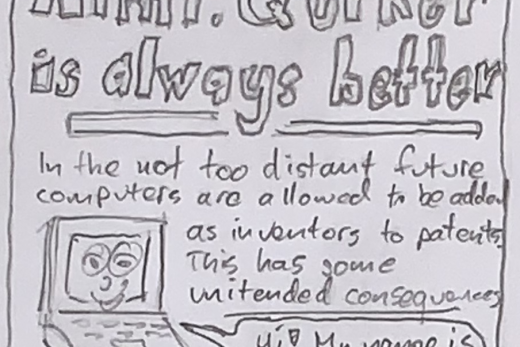 is always better
In the not too distant future
computers are allowed to be added
as inventors to patents.
This has some
unitended consequences
Hi! My name is